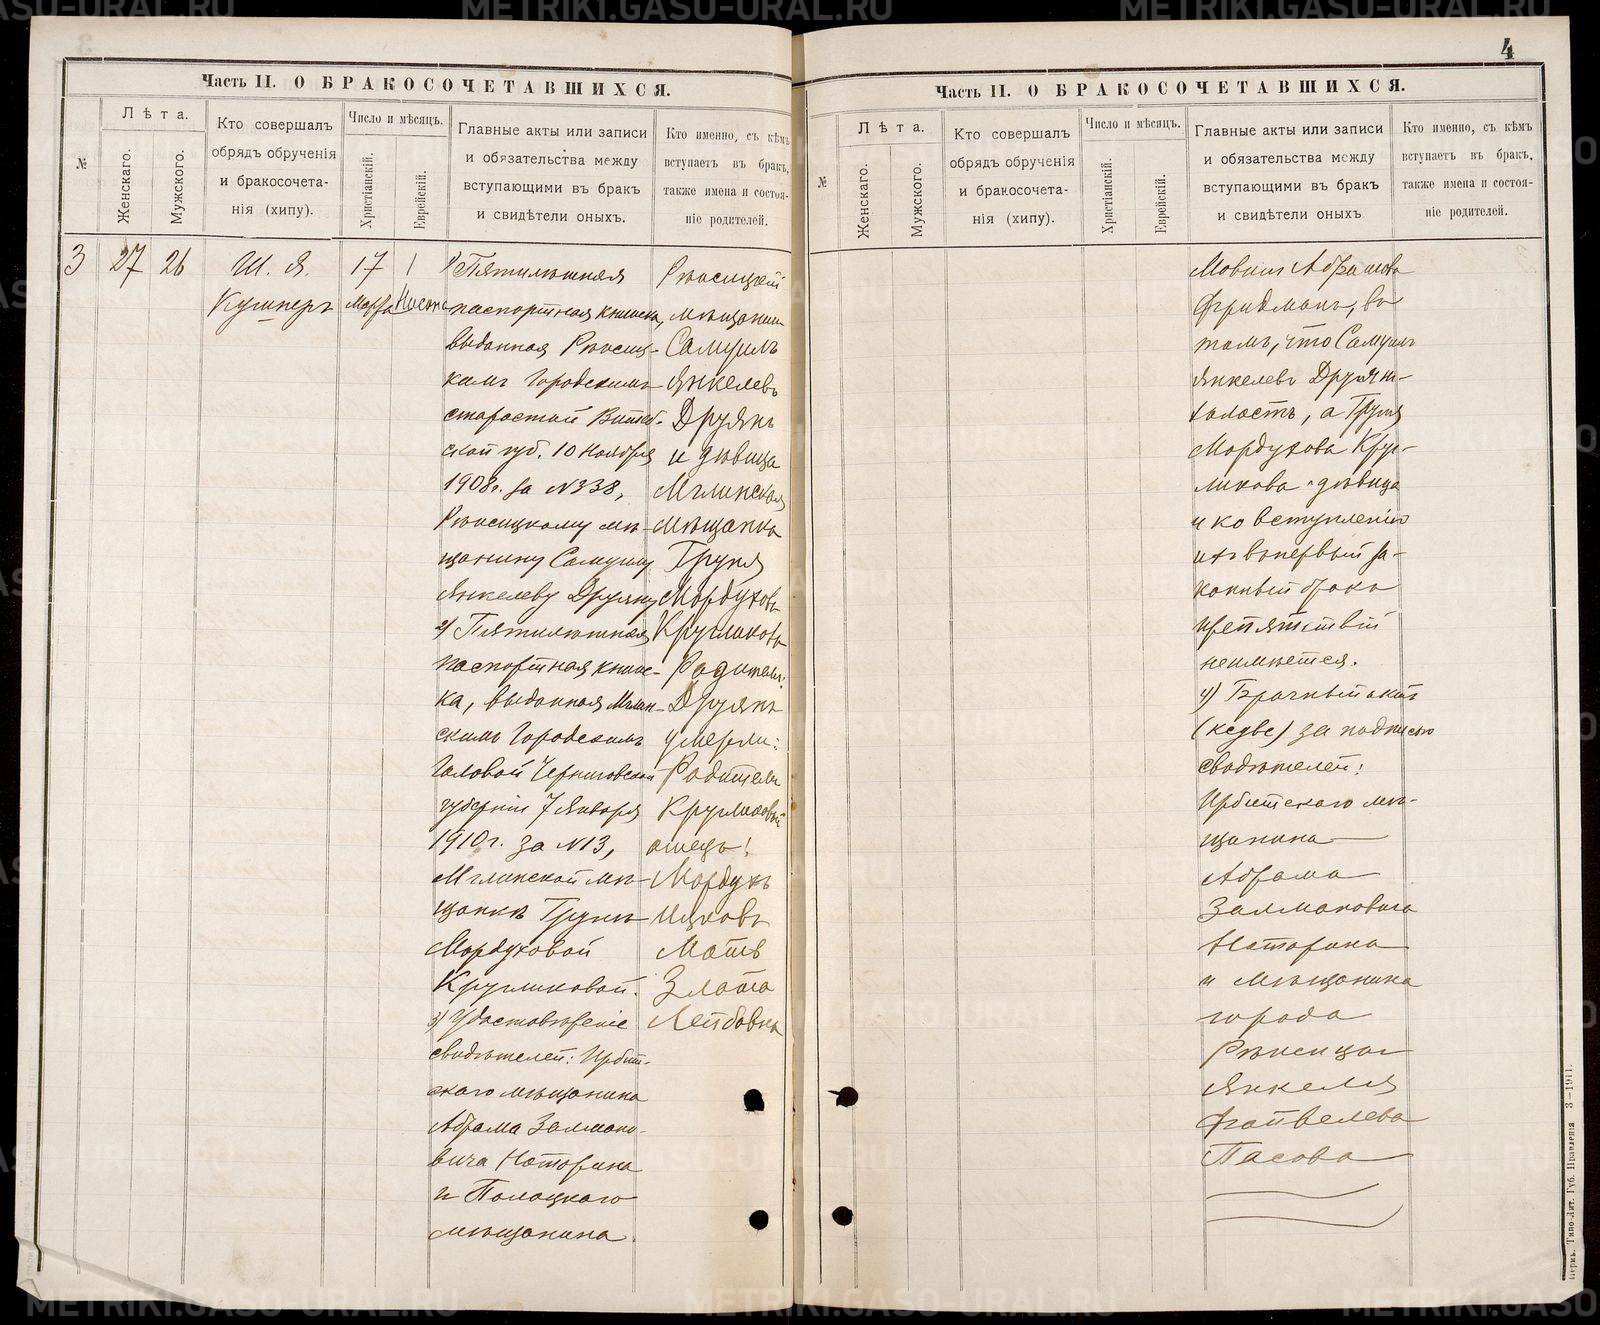 4
Часть II. О БРАКОСОЧЕТАВШИХСЯ.
№
Лѣта.
Женскаго.
Мужского.
Кто совершалъ
обрядъ обрученія
и бракосочета-
нія (хипу).
Число и мѣсяцъ.
Христіанскій.
Еврейскій.
Главные акты или записи
и обязательства между
вступающими въ бракъ
и свидѣтели оныхъ.
Кто именно, съ кѣмъ
вступаетъ въ бракъ,
также имена и состоя-
ніе родителей.
3
27
26
Ш. Я.
Кушнеръ
17
Марта
1
1) Пятилѣтняя
паспортная книжка,
выданная Рѣжиц-
кимъ Городскимъ
старостой Витеб-
ской губ. 10 Ноября
1908г. за №338,
Рѣжицкому мѣ-
щанину Самуилу
Янкелеву Друяну
2) Пятилѣтняя
паспортная книж-
ка, выданная Мглин-
скимъ Городскимъ
Головой Черниговской
губерніи 7 Января
1910г. за №13,
Мглинской мѣ-
щанкѣ Грунѣ
Мордуховой
Кругликовой.
3) Удостовѣреніе
свидѣтелей: Ирбит-
скаго мѣщанина
Абрама Залмано-
вича Наторина
и Полоцкаго
мѣщанина
Рѣжицкій
мѣщанинъ
Самуилъ
Янкелевъ
Друянъ
и дѣвица
Мглинская
мѣщанка
Груня
Мордухова
Кругликова
Родители
Друянъ
умерли:
Родители
Кругликовой
отецъ:
Мордухъ
Ицковъ
Мать
Злата
Лейбовна
Часть II. О БРАКОСОЧЕТАВШИХСЯ.
№
Лѣта.
Женскаго.
Мужского.
Кто совершалъ
обрядъ обрученія
и бракосочета-
нія (хипу).
Число и мѣсяцъ.
Христіанскій.
Еврейскій.
Главные акты или записи
и обязательства между
вступающими въ бракъ
и свидѣтели оныхъ
Кто именно, съ кѣмъ
вступаетъ въ бракъ,
также имена и состоя-
ніе родителей.
Абрамова
Фридманъ, въ
томъ, что Самуилъ
Янкелевъ Друянъ
холостъ, а Груня
Мордухова Круг-
ликова дѣвица
и ко вступленію
ихъ въ первый за-
конный бракъ
препятствій
неимѣется.
4) Брачный актъ
за подписью
свидѣтелей:
Ирбитскаго мѣ-
щанина
Абрама
Залмановича
Наторина
и мѣщанина
города
Рѣжицы
Янкеля
Файвелева
Пасова
Пермь. Типо-Лит. Губ. Правленія 3-1911.
METRIKI.GASO-URAL.RU